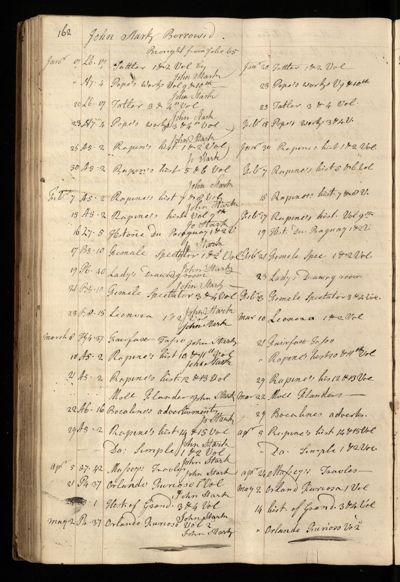 162 John Stark Borrowed.
Brought from folio 65
Janry 17 L6. 17 Tattler 1 & 2 Vol
John Stark
Janry 20 Tattler 1 & 2 Vol
" A7. 4 Pope's works Vol 9 & 10th
John Stark
23 Pope's works V 9 & 10th
20 L6. 17 Tatler 3 & 4th Vol
John Stark
23 Tatler 3 & 4 Vol
23 A7. 4 Pope's works 3 & 4th Vol
John Stark
Febry 18 Pope's works 3 & 4 V.
25 A5. 2 Rapin's hist 1 & 2 Vol
Jo Stark
Janry 30 Rapin's hist 1 & 2 Vol
30 A5. 2 Rapin's hist 5 & 6 Vol
John Stark
Febry 7 Rapine's hist 5 & 6 Vol
Febry 7 A5. 2 Rapine's hist 7 & 8 Vol
John Stark
15 Rapine's hist 7 & 8 V.
15 A5. 2 Rapine's hist Vol 9th
Jo Stark
Febry 17 Rapine's hist Vol 9th
16 L7. 5 Histoire du Paraguay 1 & 2 V
Jo Stark
19 Hist. du Paraguay 1 & 2 V
17 P5. 10 Female Spectator 1 & 2 Vol
John Stark
Febry 21 Female Spec. 1 & 2 Vol
19 P6. 40 Lady's Drawing room
John Stark
23 Lady's Drawing room
21 P5. 10 Female Spectator 3 & 4 Vol
John Stark
Febry 23 Female Spectator 3 & 4 Vol.
23 Leonora 1 & 2 Vol
John Stark
Mar 10 Leonora 1 & 2 Vol
March 8 37 Fairfax Tasso John Stark
21 Fairfax Tasso
10 A5. 2 Rapin's hist 10 & 11th Vol
John Stark
" Rapin's hist 10 & 11th Vol
21 A5. 2 Rapin's hist 12 & 13 Vol
29 Rapin's hist 12 & 13 Vol
" Moll Flanders John Stark
Mar 22 Moll Flanders
22 A6. 16 Bocaline's advertisements
Jo Stark
29 Bocalines advertis.
29 A5. 2 Rapine's hist 14 & 15 Vol
John Stark
apr 2 Rapine's hist 14 & 15 Vol
Da: Simple 1 & 2 Vol
John Stark
" Da: Simple 1 & 2 Vol
apr 5 37. 42 John Stark
apr 24
21 P4. 37 Orlando Furioso 1 Vol
John Stark
May 2 Orland Furioso 1 Vol
1 Hist of Grand: 3 & 4 Vol
John Stark
14 hist of Grand: 3 & 4 Vol
May 2 P4. 37 Orlando Furioso Vol 2
John Stark
" Orlando Furioso Vo 2